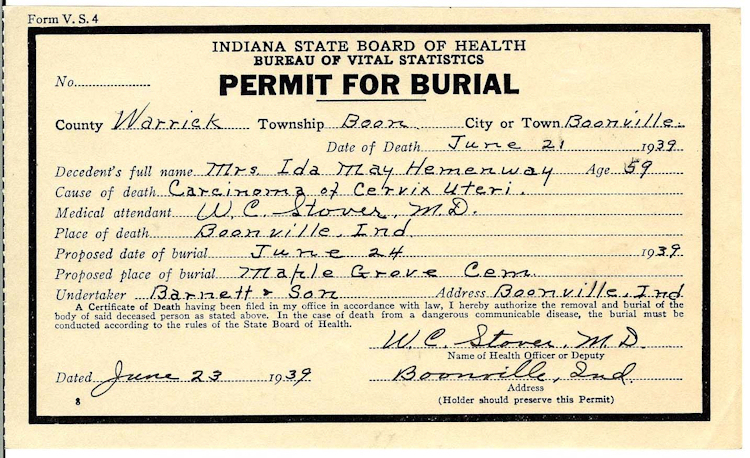 Form V. S. 4
INDIANA STATE BOARD OF HEALTH
BUREAU OF VITAL STATISTICS
No.
PERMIT FOR BURIAL
County Warrick Township Boon City or Town Boonville
Date of Death June 21 1939
Decedent's full name Mrs. Ida May Hemenway Age 59
Cause of death Carcinoma of Cervix Uteri.
Medical attendant W. C. Stover, M.D.
Place of death Boonville, Ind
Proposed date of burial June 24 1939
Proposed place of burial Maple Grove Cem.
Undertaker Barnett & Son Address Boonville, Ind
A Certificate of Death having been filed in my office in accordance with law, I hereby authorize the removal and burial of the
body of said deceased person as stated above. In the case of death from a dangerous communicable disease, the burial must be
conducted according to the rules of the State Board of Health.
W. C. Stover, M. D.
Name of Health Officer or Deputy
Dated June 23 1939 Boonville, Ind.
Address
8 (Holder should preserve this Permit)